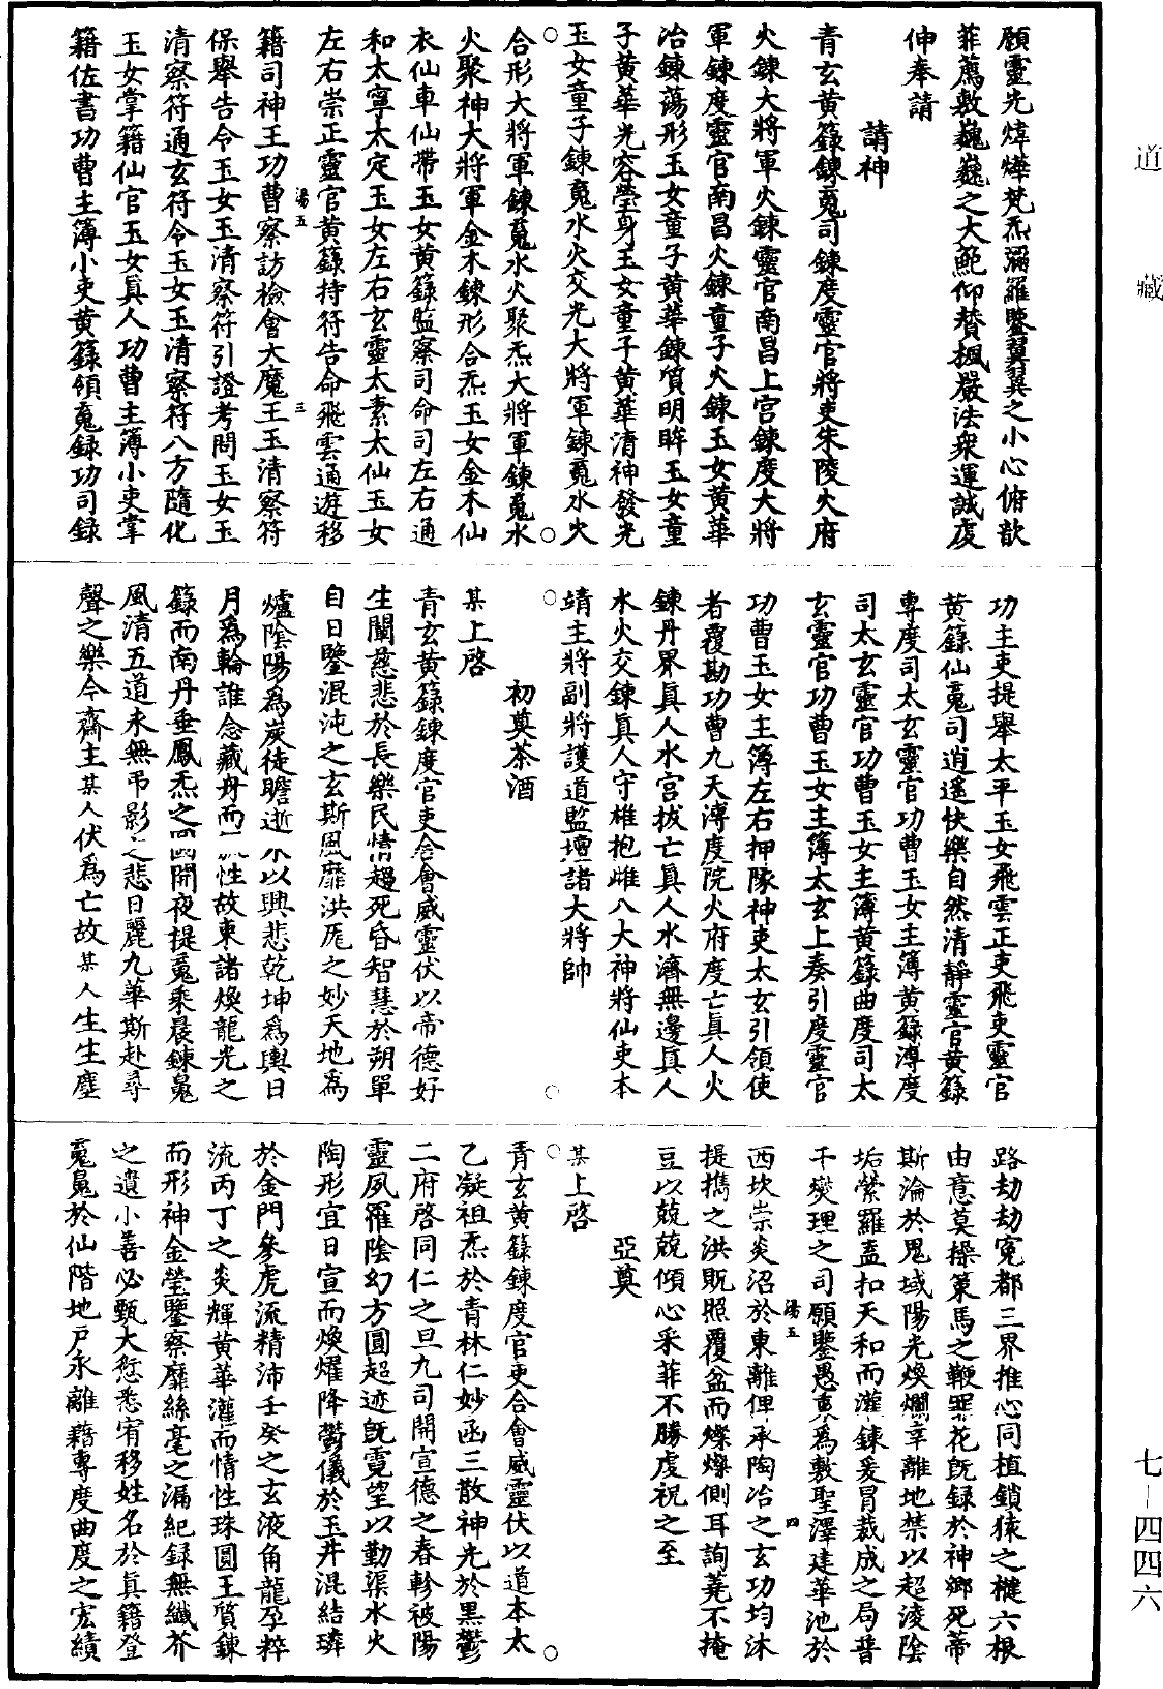 道藏
願靈光煒燁梵炁彌羅鑒翼翼之小心俯歆
菲薦敷巍巍之大範仰贊楓嚴法衆運誠虔
伸奉請
請神
青玄黃籙鍊䰟司鍊度靈官將吏朱陵火府
火鍊大將軍火鍊靈官南昌上宮鍊度大將
軍鍊度靈官南昌火鍊童子火鍊玉女黃華
冶鍊蕩形玉女童子黃華鍊質明眸玉女童
子黃華光容瑩身玉女童子黃華清神發光
玉女童子鍊䰟水火交光大將軍鍊䰟水火
合形大將軍鍊䰟水火聚炁大將軍鍊䰟水
火聚神大將軍金木鍊形合炁玉女金木仙
衣仙車仙帶玉女黃籙監察司命司左右通
和太寧太定玉女左右玄靈太素太仙玉女
左右崇正靈官黃籙持符告命飛雲通遊移
湯五
三
籍司神王功曹察訪檢會大魔王玉清察符
保舉告令玉女玉清察符引證考問玉女玉
清察符通玄符令玉女玉清察符八方隨化
玉女掌籍仙官玉女真人功曹主簿小吏掌
籍佐書功曹主簿小吏黃籙領䰟録功司録
功主吏提舉太平玉女飛雲正吏飛吏靈官
黃籙仙䰟司逍遙快樂自然清靜靈官黃籙
專度司太玄靈官功曹玉女主簿黃籙漙度
司太玄靈官功曹玉女主簿黃籙曲度司太
玄靈官功曹玉女主簿太玄上奏引度靈官
功曹玉女主簿左右押隊神吏太玄引領使
者覆勘功曹九天漙度院火府度亡真人火
鍊丹界真人水宮拔亡真人水濟無邊真人
水火交鍊真人守雄抱雌八大神將仙吏本
靖主將副將護道監壇諸大將帥
初奠茶酒
某上啓
青玄黃籙鍊度官吏合會威靈伏以帝德好
生闡慈悲於長樂民情趨死昏智慧於朔單
自日鑒混沌之玄斯風靡洪厖之妙天地爲
爐陰陽爲炭徒瞻逝水以興悲乾坤爲輿日
月爲輪誰念藏舟而二流性故東諸煥龍光之
籙而南丹垂鳳炁之圖開夜提䰟乘晨鍊䰟
風清五道永無弔影之悲日麗九華斯赴尋
聲之樂今齋主某人伏爲亡故某人生生塵
路劫劫寃都三界推心同植鎖猿之槤六根
由意莫操策馬之鞭罪花旣録於神鄉死蒂
斯淪於鬼域陽光煥爛享離地禁以超淩陰
垢縈羅盍扣天和而灌鍊爰冐裁成之局普
干爕理之司願鑒愚衷爲敷聖澤建華池於
湯五
四
西坎崇炎沼於東離俾承陶冶之玄功均沐
提攜之洪貺照覆盆而燦燦側耳詢蕘不掩
豆以兢兢傾心采菲不勝虔祝之至
亞奠
某上啓
青玄黃籙鍊度官吏合會威靈伏以道本太
乙凝祖炁於青林仁妙函三散神光於黑鬱
二府啓同仁之旦九司開宣德之春軫被陽
靈夙羅陰幻方圓超迹旣霓望以勤渠水火
陶形宜日宣而煥燿降鬱儀於玉井混結璘
於金門參虎流精沛壬癸之玄液角龍孕粹
流丙丁之炎輝黃華灌而情性珠圓王質鍊
而形神金瑩鑒察靡絲毫之漏紀録無纖芥
之遺小善必甄大愆悉宥移姓名於真籍登
䰟䰟於仙階地戶永離藉專度曲度之宏績
七—四四六